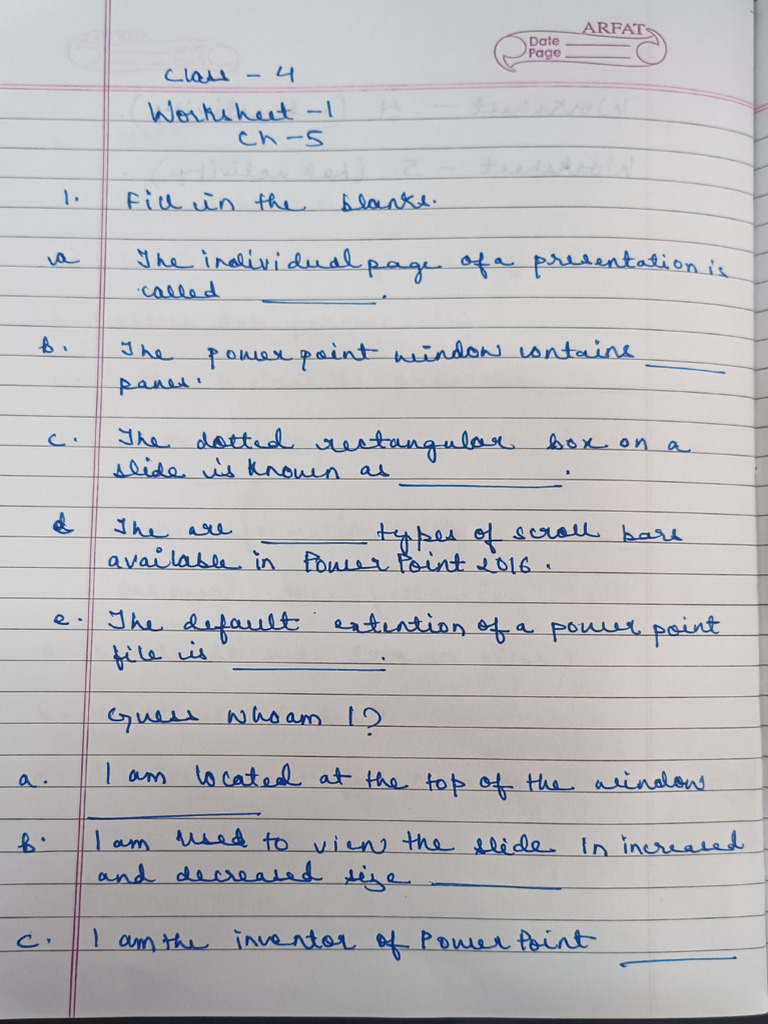 ARFAT
Date
Page
Class - 4
Worksheet - 1
Ch - 5
1. Fill in the blanks.
a The individual page of a presentation is
called ________.
b. The power point window contains ____
panes.
c. The dotted rectangular box on a
slide is known as ________.
d The are ______ types of scroll bars
available in PowerPoint 2016.
e. The default extention of a power point
file is ________.
Guess who am I?
a. I am located at the top of the window
________
b. I am used to view the slide in increased
and decreased size ______
c. I am the inventor of PowerPoint ______